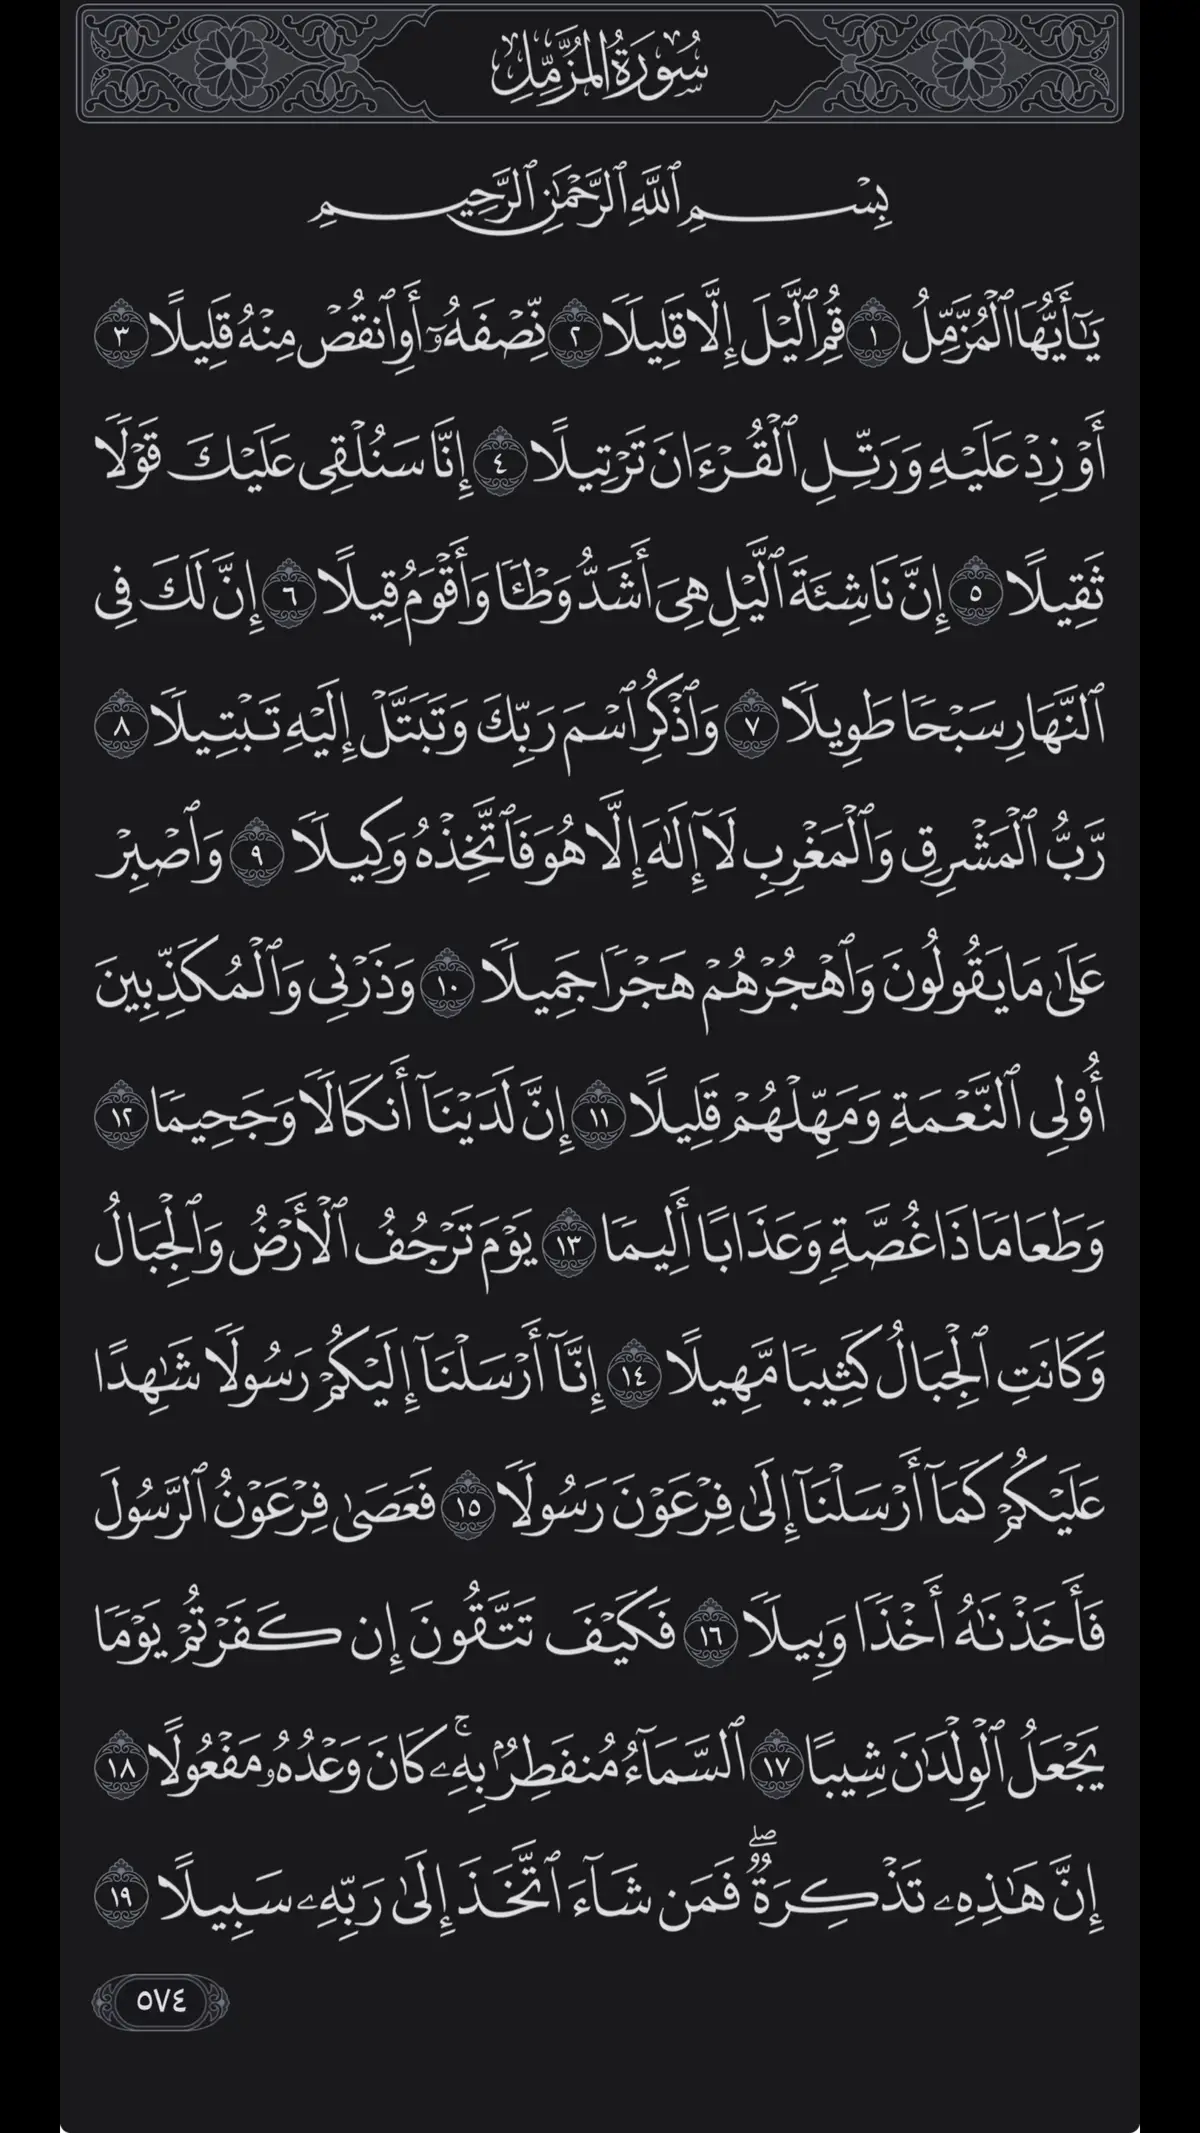 سُورَةُ الْمُزَّمِّلِ
بِسْمِ ٱللَّهِ ٱلرَّحْمَٰنِ ٱلرَّحِيمِ
يَٰٓأَيُّهَا ٱلْمُزَّمِّلُ ١ قُمِ ٱلَّيْلَ إِلَّا قَلِيلًا ٢ نِّصْفَهُۥٓ أَوِ ٱنقُصْ مِنْهُ قَلِيلًا ٣
أَوْ زِدْ عَلَيْهِ وَرَتِّلِ ٱلْقُرْءَانَ تَرْتِيلًا ٤ إِنَّا سَنُلْقِى عَلَيْكَ قَوْلًا
ثَقِيلًا ٥ إِنَّ نَاشِئَةَ ٱلَّيْلِ هِىَ أَشَدُّ وَطْـًٔا وَأَقْوَمُ قِيلًا ٦ إِنَّ لَكَ فِى
ٱلنَّهَارِ سَبْحًا طَوِيلًا ٧ وَٱذْكُرِ ٱسْمَ رَبِّكَ وَتَبَتَّلْ إِلَيْهِ تَبْتِيلًا ٨
رَّبُّ ٱلْمَشْرِقِ وَٱلْمَغْرِبِ لَآ إِلَٰهَ إِلَّا هُوَ فَٱتَّخِذْهُ وَكِيلًا ٩ وَٱصْبِرْ
عَلَىٰ مَا يَقُولُونَ وَٱهْجُرْهُمْ هَجْرًا جَمِيلًا ١٠ وَذَرْنِى وَٱلْمُكَذِّبِينَ
أُو۟لِى ٱلنَّعْمَةِ وَمَهِّلْهُمْ قَلِيلًا ١١ إِنَّ لَدَيْنَآ أَنكَالًا وَجَحِيمًا ١٢
وَطَعَامًا ذَا غُصَّةٍ وَعَذَابًا أَلِيمًا ١٣ يَوْمَ تَرْجُفُ ٱلْأَرْضُ وَٱلْجِبَالُ
وَكَانَتِ ٱلْجِبَالُ كَثِيبًا مَّهِيلًا ١٤ إِنَّآ أَرْسَلْنَآ إِلَيْكُمْ رَسُولًا شَٰهِدًا
عَلَيْكُمْ كَمَآ أَرْسَلْنَآ إِلَىٰ فِرْعَوْنَ رَسُولًا ١٥ فَعَصَىٰ فِرْعَوْنُ ٱلرَّسُولَ
فَأَخَذْنَٰهُ أَخْذًا وَبِيلًا ١٦ فَكَيْفَ تَتَّقُونَ إِن كَفَرْتُمْ يَوْمًا
يَجْعَلُ ٱلْوِلْدَٰنَ شِيبًا ١٧ ٱلسَّمَآءُ مُنفَطِرٌۢ بِهِۦ ۚ كَانَ وَعْدُهُۥ مَفْعُولًا ١٨
إِنَّ هَٰذِهِۦ تَذْكِرَةٌ ۖ فَمَن شَآءَ ٱتَّخَذَ إِلَىٰ رَبِّهِۦ سَبِيلًا ١٩
٥٧٤